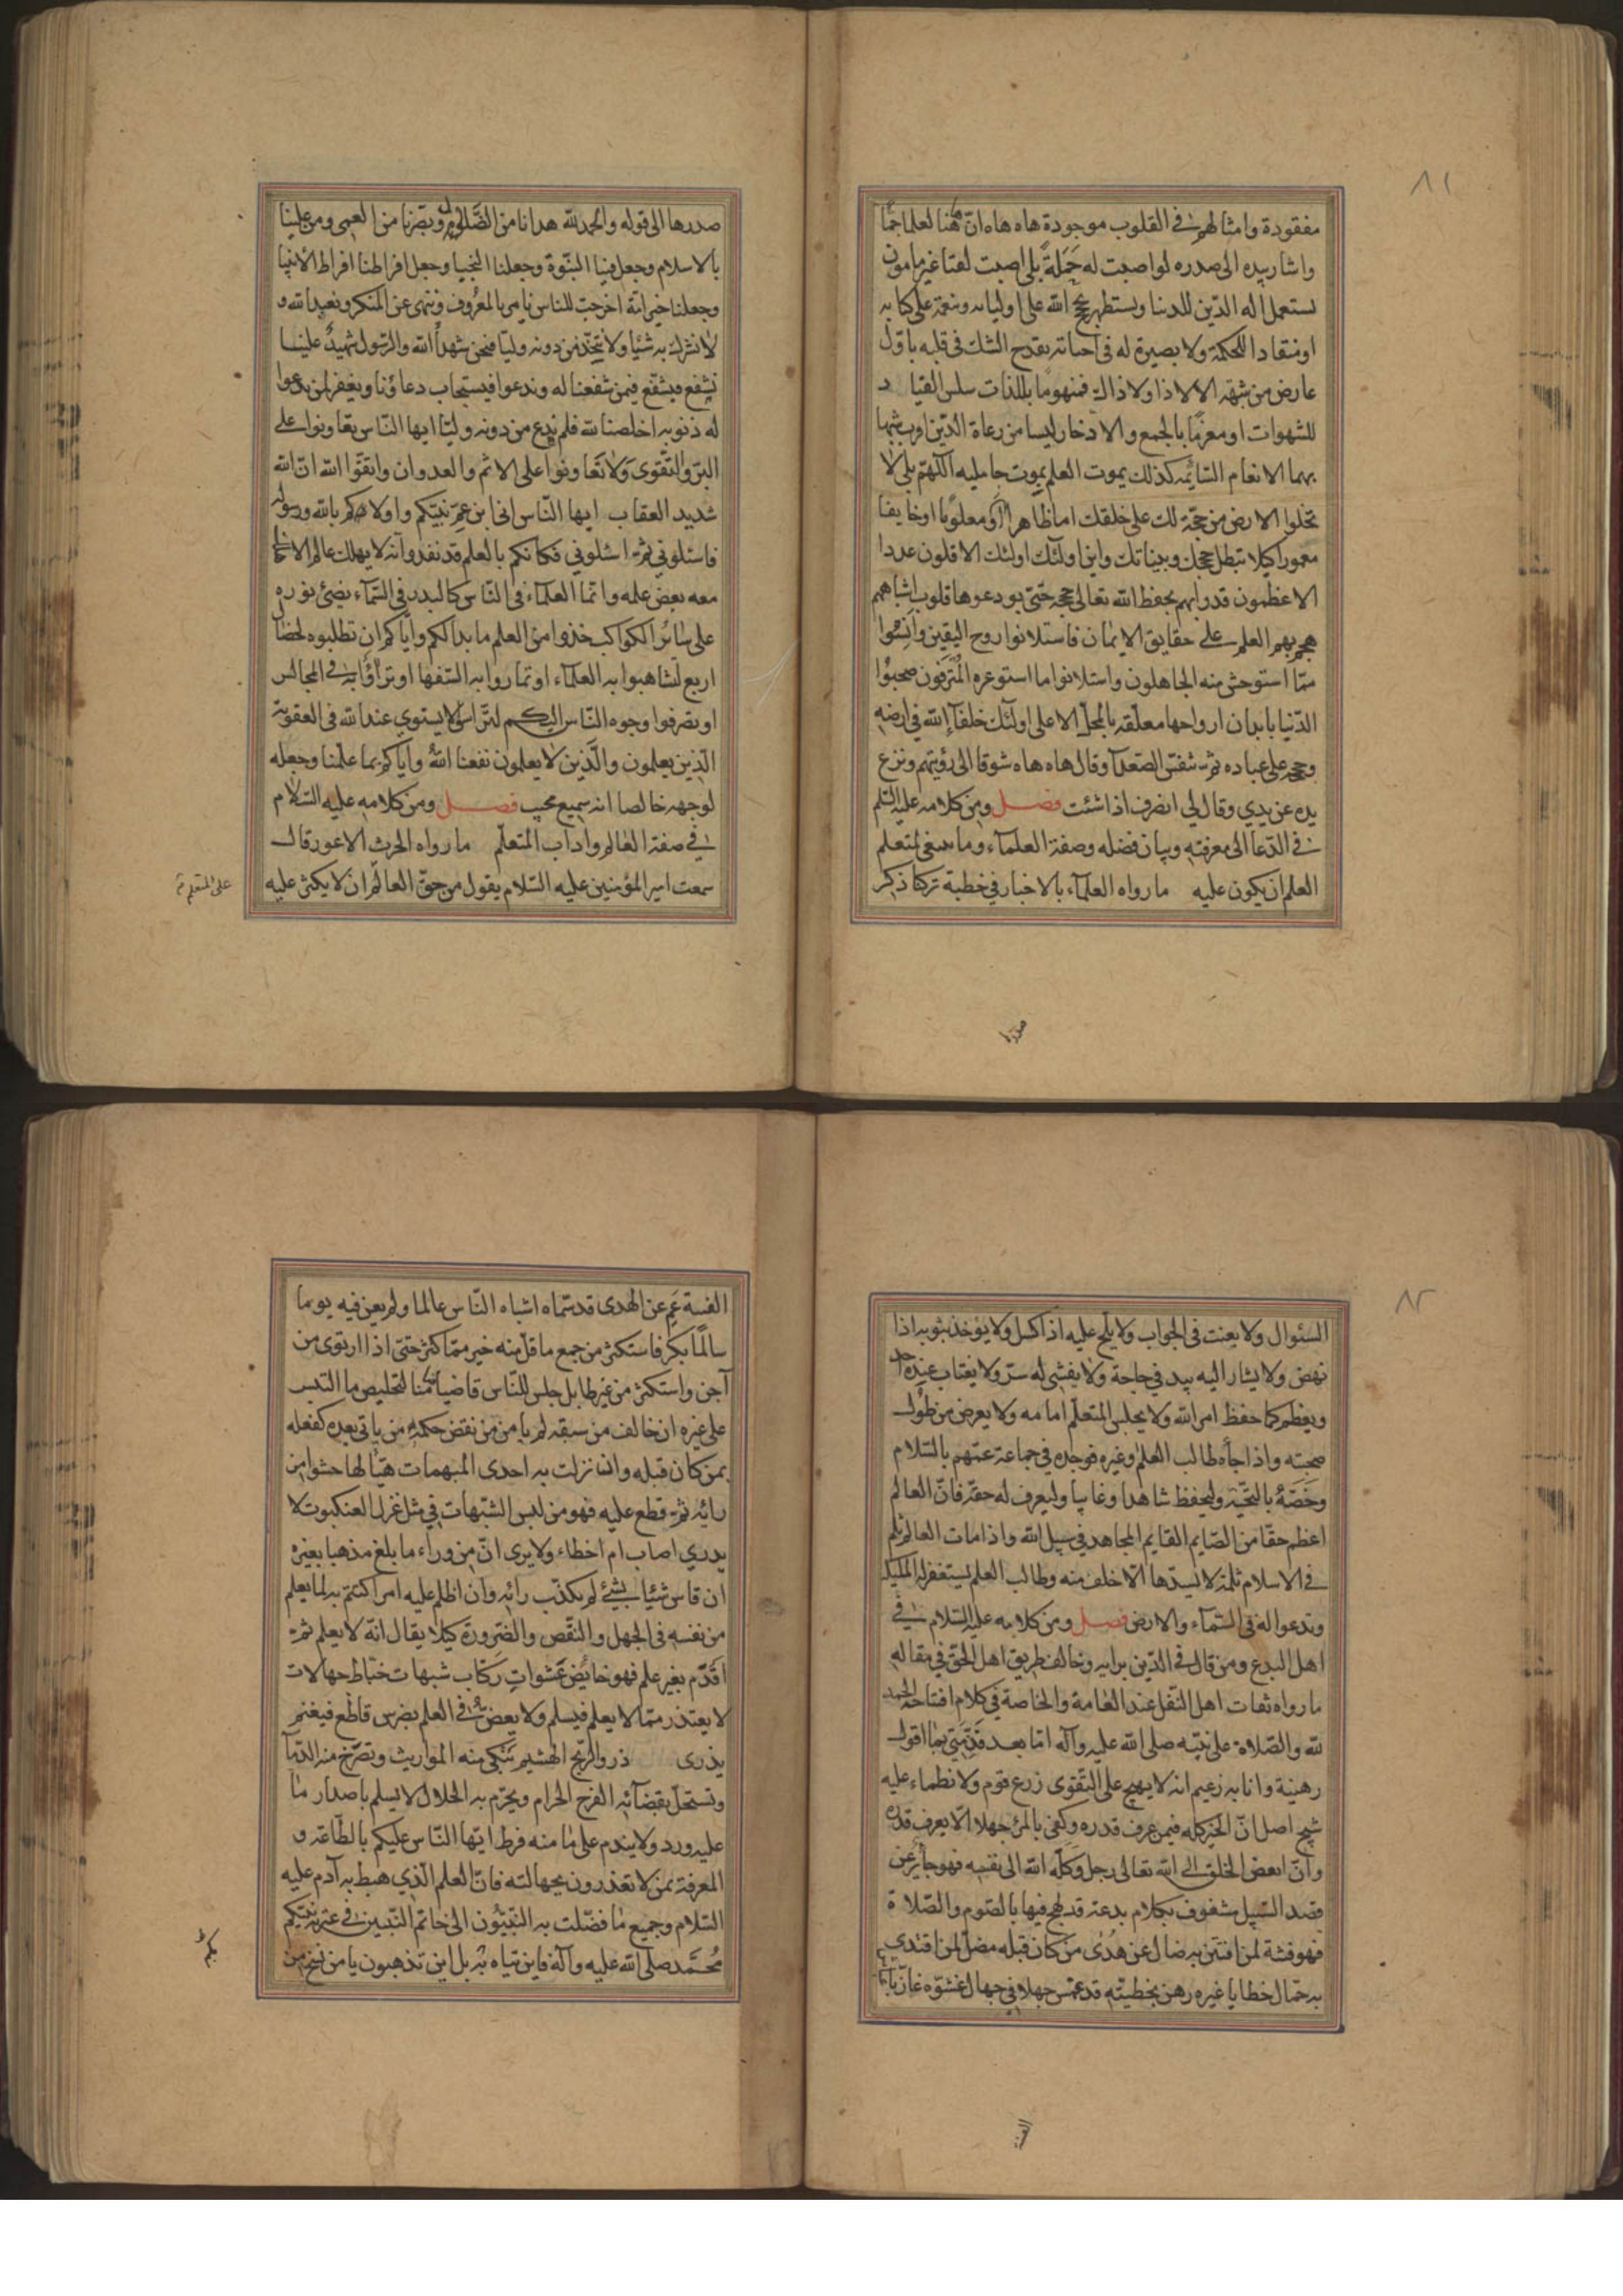 ٨١
مفقودة وامثالهم في القلوب موجودة هاه هاه ان ههنا لعلما جمّا
واشار بيده الى صدره لو اصبت له حَمَلَةً بلى اصبت لقنا غير مامون
يستعمل اله الدّين للدنيا ويستظهر بحجج الله على اوليائه وبنعمة على كتابه
او منقادا للحكمة ولا بصيرة له في احيائه يقدح الشك في قلبه باوّل
عارض من شبهة الا لا ذا ولا ذاك فمنهومًا باللذات سلس القياد
للشهوات او مغرمًا بالجمع والادخار ليسا من رعاة الدّين اقرب شبها
بهما الانعام السّائمة كذلك يموت العلم بموت حامليه اللّهم بلى لا
تخلوا الارض من حجّة لك على خلقك اما ظاهرا او معلومًا او خايفا
مغمورا كيلا تبطل حججك وبيناتك واين اولئك اولئك الاقلون عددا
الاعظمون قدرا بهم يحفظ الله تعالى حججه حتّى يودعوها قلوب اشباههم
هجم بهم العلم على حقايق الايمان فاستلانوا روح اليقين وأنِسُوا
ممّا استوحش منه الجاهلون واستلانوا ما استوعره المُترَفون صحبوُا
الدّنيا بابدان ارواحها معلّقه بالمحلّ الاعلى اولئك خلفآء الله في ارضه
وحججه على عباده ثمّ تنفّس الصّعدآء وقال هاه هاه شوقا الى رؤيتهم ونزع
يده عن يدي وقال لي انصرف اذا شئت فصل ومن كلامه عليه السّلم
في الدّعا الى معرفته وبيان فضله وصفة العلمآء وما ينبغي لمتعلم
العلم ان يكون عليه ما رواه العلمآء بالاخبار في خطبة تركنا ذكر
صدرها
صدرها الى قوله والحمد لله هدانا من الضّلالة وبصّرنا من العمى ومن علينا
بالاسلام وجعل فينا النّبوّة وجعلنا النجبا وجعل افراطنا افراط الأنبيا
وجعلنا خير امّة اخرجت للناس نامر بالمعرُوف وننهى عن المنكر ونعبد الله و
لا نشرك به شيئا ولا نتّخذ من دونه وليّا فنحن شهدآء الله والرّسول شهيدٌ علينا
نشفع فيشفّع فيمن شفعنا له وندعوا فيستجاب دعاؤنا ويغفر لمن ندعوا
له ذنوبه اخلصنا لله فلم ندع من دونه وليّا ايها النّاس تعاونوا على
البرّ والتّقوى وَلا تَعاونوا على الاثم والعدوان واتقوا الله انّ الله
شديد العقاب ايها النّاس انى ابن عمّ نبيّكم واولاكم بالله ورسوله
فاسئلوني ثمّ اسئلوني فكانكم بالعلم قد نفد وانّه لا يهلك عالم الا هلك
معه بعض علمه وانّما العلمآء في النّاس كالبدر في السّمآء يضئ نوره
على سائر الكواكب خذوا من العلم ما بدا لكم وايّاكم ان تطلبوه لخصال
اربع لتباهوا به العلمآء او تماروا به السّفها او ترآؤا به في المجالس
او تصرفوا وجوه النّاس اليكم للترأس لا يستوي عند الله في العقوبة
الّذين يعلمون والّذين لا يعلمون نفعنا الله وايّاكم بما علّمنا وجعله
لوجهه خالصا انه سميع مجيب فصل ومن كلامه عليه السّلام
في صفة العالم واداب المتعلّم ما رواه الحرث الاعور قال
سمعت امير المؤمنين عليه السّلام يقول من حقّ العالم ان لا يكثر عليه
على المتعلم
٨٢
السئوال ولا يعنت في الجواب ولا يلح عليه اذا كسل ولا يؤخذ بثوبه اذا
نهض ولا يشار اليه بيد في حاجة ولا يفشى له سرّ ولا يغتاب عنده احد
ويعظم كما حفظ امر الله ولا يجلس المتعلّم امامه ولا يعرض من طول
صحبته واذا جآءه طالب العلم وغيره فوجده في جماعة عمّهم بالسّلام
وخصّهُ بالتّحيّة وليحفظ شاهدا وغايبا وليعرف له حقّه فانّ العالم
اعظم حقّا من الصّايم القايم المجاهد في سبيل الله واذا مات العالم ثلم
في الاسلام ثلمة لا يسدّها الّا خلف منه وطالب العلم يستغفر له الملئكة
وتدعوا له في السّمآء والارض فصل ومن كلامه عليه السّلام في
اهل البدع ومن قال في الدّين برايه وخالف طريق اهل الحقّ في مقاله
ما رواه ثقات اهل النّقل عند العامة والخاصة في كلام افتتاحه الحمد
لله والصّلاة على نبيّه صلى الله عليه وآله امّا بعد فذمّتي بما اقول
رهينة وانا به زعيم انه لا يهيج على التّقوى زرع قوم ولا يظماء عليه
سنخ اصل انّ الخير كله فيمن عرف قدره وكفى بالمرء جهلا الّا يعرف قدره
وانّ ابغض الخلق الى الله تعالى رجل وكله الله الى نفسه فهو جآئر عن
قصد السّبيل مشغوف بكلام بدعة قد لهج فيها بالصّوم والصّلاة
فهو فتنة لمن افتتن به ضال عن هُدى من كان قبله مضلّ لمن اقتدي
به حمّال خطايا غيره رهن بخطيئته قد قمش جهلا في جهال غشوه غارّ
الفتنة
الفتنة عَمٍ عن الهدى قد سمّاه اشباه النّاس عالما ولم يغن فيه يوما
سالمًا بكر فاستكثر من جمع ما قلّ منه خير ممّا كثر حتى اذا ارتوى من
آجن واستكثر من غير طايل جلس للنّاس قاضيا ضامنا لتخليص ما التبس
على غيره ان خالف من سبقه لم يامن من نقض حكمه من ياتي بعده كفعله
بمن كان قبله وان نزلت به احدى المبهمات هيّأ لها حشوا من
رائه ثمّ قطع عليه فهو من لبس الشّبهات في مثل غزل العنكبوت لا
يدري اصاب ام اخطاء ولا يرى انّ من وراء ما بلغ مذهبا بغيره
ان قاس شيئا بشيء لم يكذّب رائه وان اظلم عليه امر اكتتم به لما يعلم
من نفسه في الجهل والنّقص والضّرورة كيلا يقال انّه لا يعلم ثمّ
اقدم بغير علم فهو خايض عشوات رَكّاب شبهات خبّاط جهالات
لا يعتذر ممّا لا يعلم فيسلم ولا يعضّ في العلم بضرس قاطع فيغنم
يذرى ذرو الرّيح الهشيم تبكى منه المواريث وتصرّخ منه الدّمآء
وتستحلّ بقضآئه الفرج الحرام ويحرّم به الحلال لا يسلم باصدار ما
عليه ورد ولا يندم على ما منه فرط ايّها النّاس عليكم بالطّاعة و
المعرفة بمن لا تعذرون بجهالته فانّ العلم الّذي هبط به آدم عليه
السّلام وجميع ما فضّلت به النّبيّون الى خاتم النّبيين في عترة نبيّكم
مُحمّد صلى الله عليه وآله فاين يتاه بكم بل اين تذهبون يا من نسخ من
بكم